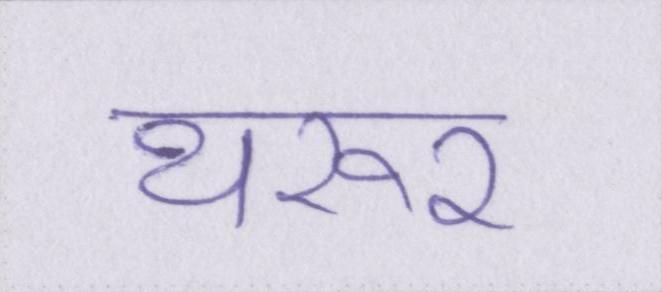 थरूर